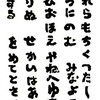 れらもろくつたし
うにのむ みなよ
ひおほえやねへゆ
りぬ せいはあ
する をめとさ